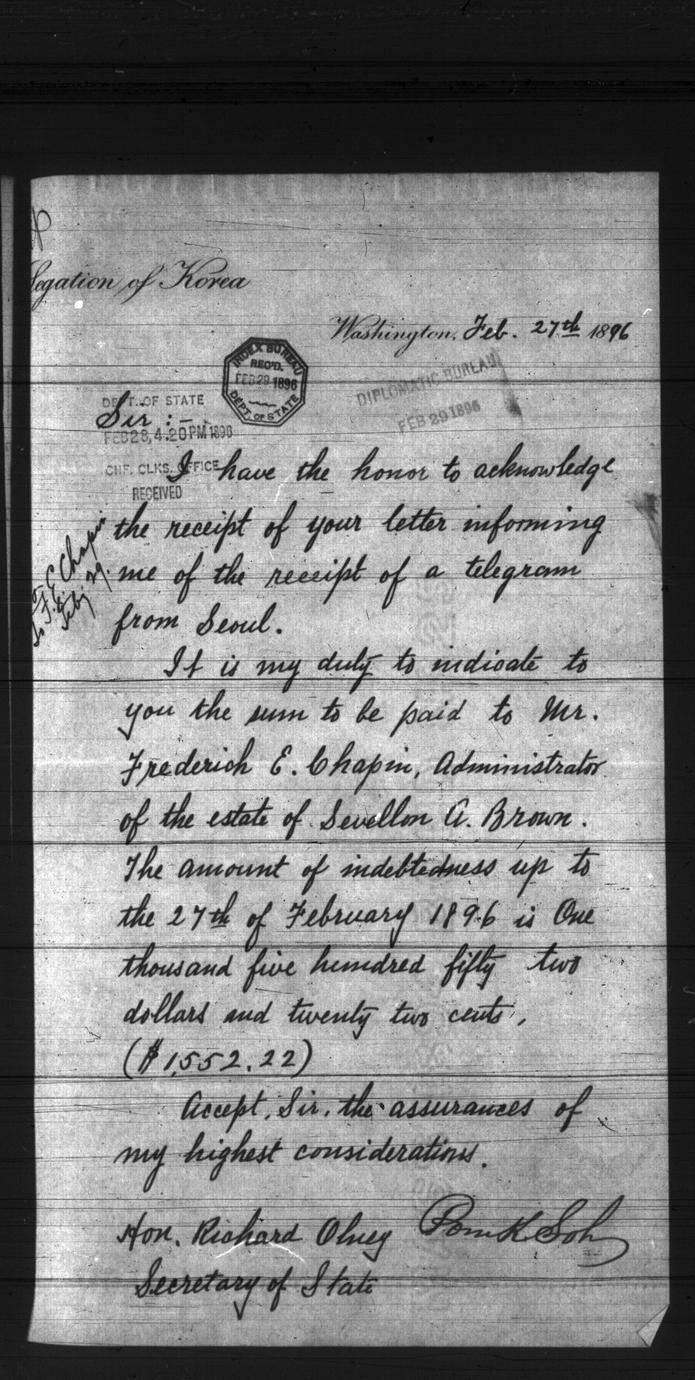 Legation of Korea
Washington, Feb. 27th 1896
INDEX BUREAU
REC'D.
FEB 29 1896
DEPT. OF STATE
DIPLOMATIC BUREAU
FEB 29 1896
DEPT. OF STATE
Sir :-
FEB 28, 4.20 PM 1896
CHF. CLKS. OFFICE
RECEIVED
I have the honor to acknowledge
the receipt of your letter informing
me of the receipt of a telegram
from Seoul.
F. E. Chapin
Feby 29.
It is my duty to indicate to
you the sum to be paid to Mr.
Frederich E. Chapin, Administrator
of the estate of Sevellon A. Brown.
The amount of indebtedness up to
the 27th of February 1896 is One
thousand five hundred fifty two
dollars and twenty two cents,
($1,552.22)
Accept, Sir, the assurances of
my highest considerations.
Hon. Richard Olney Pom K. Soh
Secretary of State